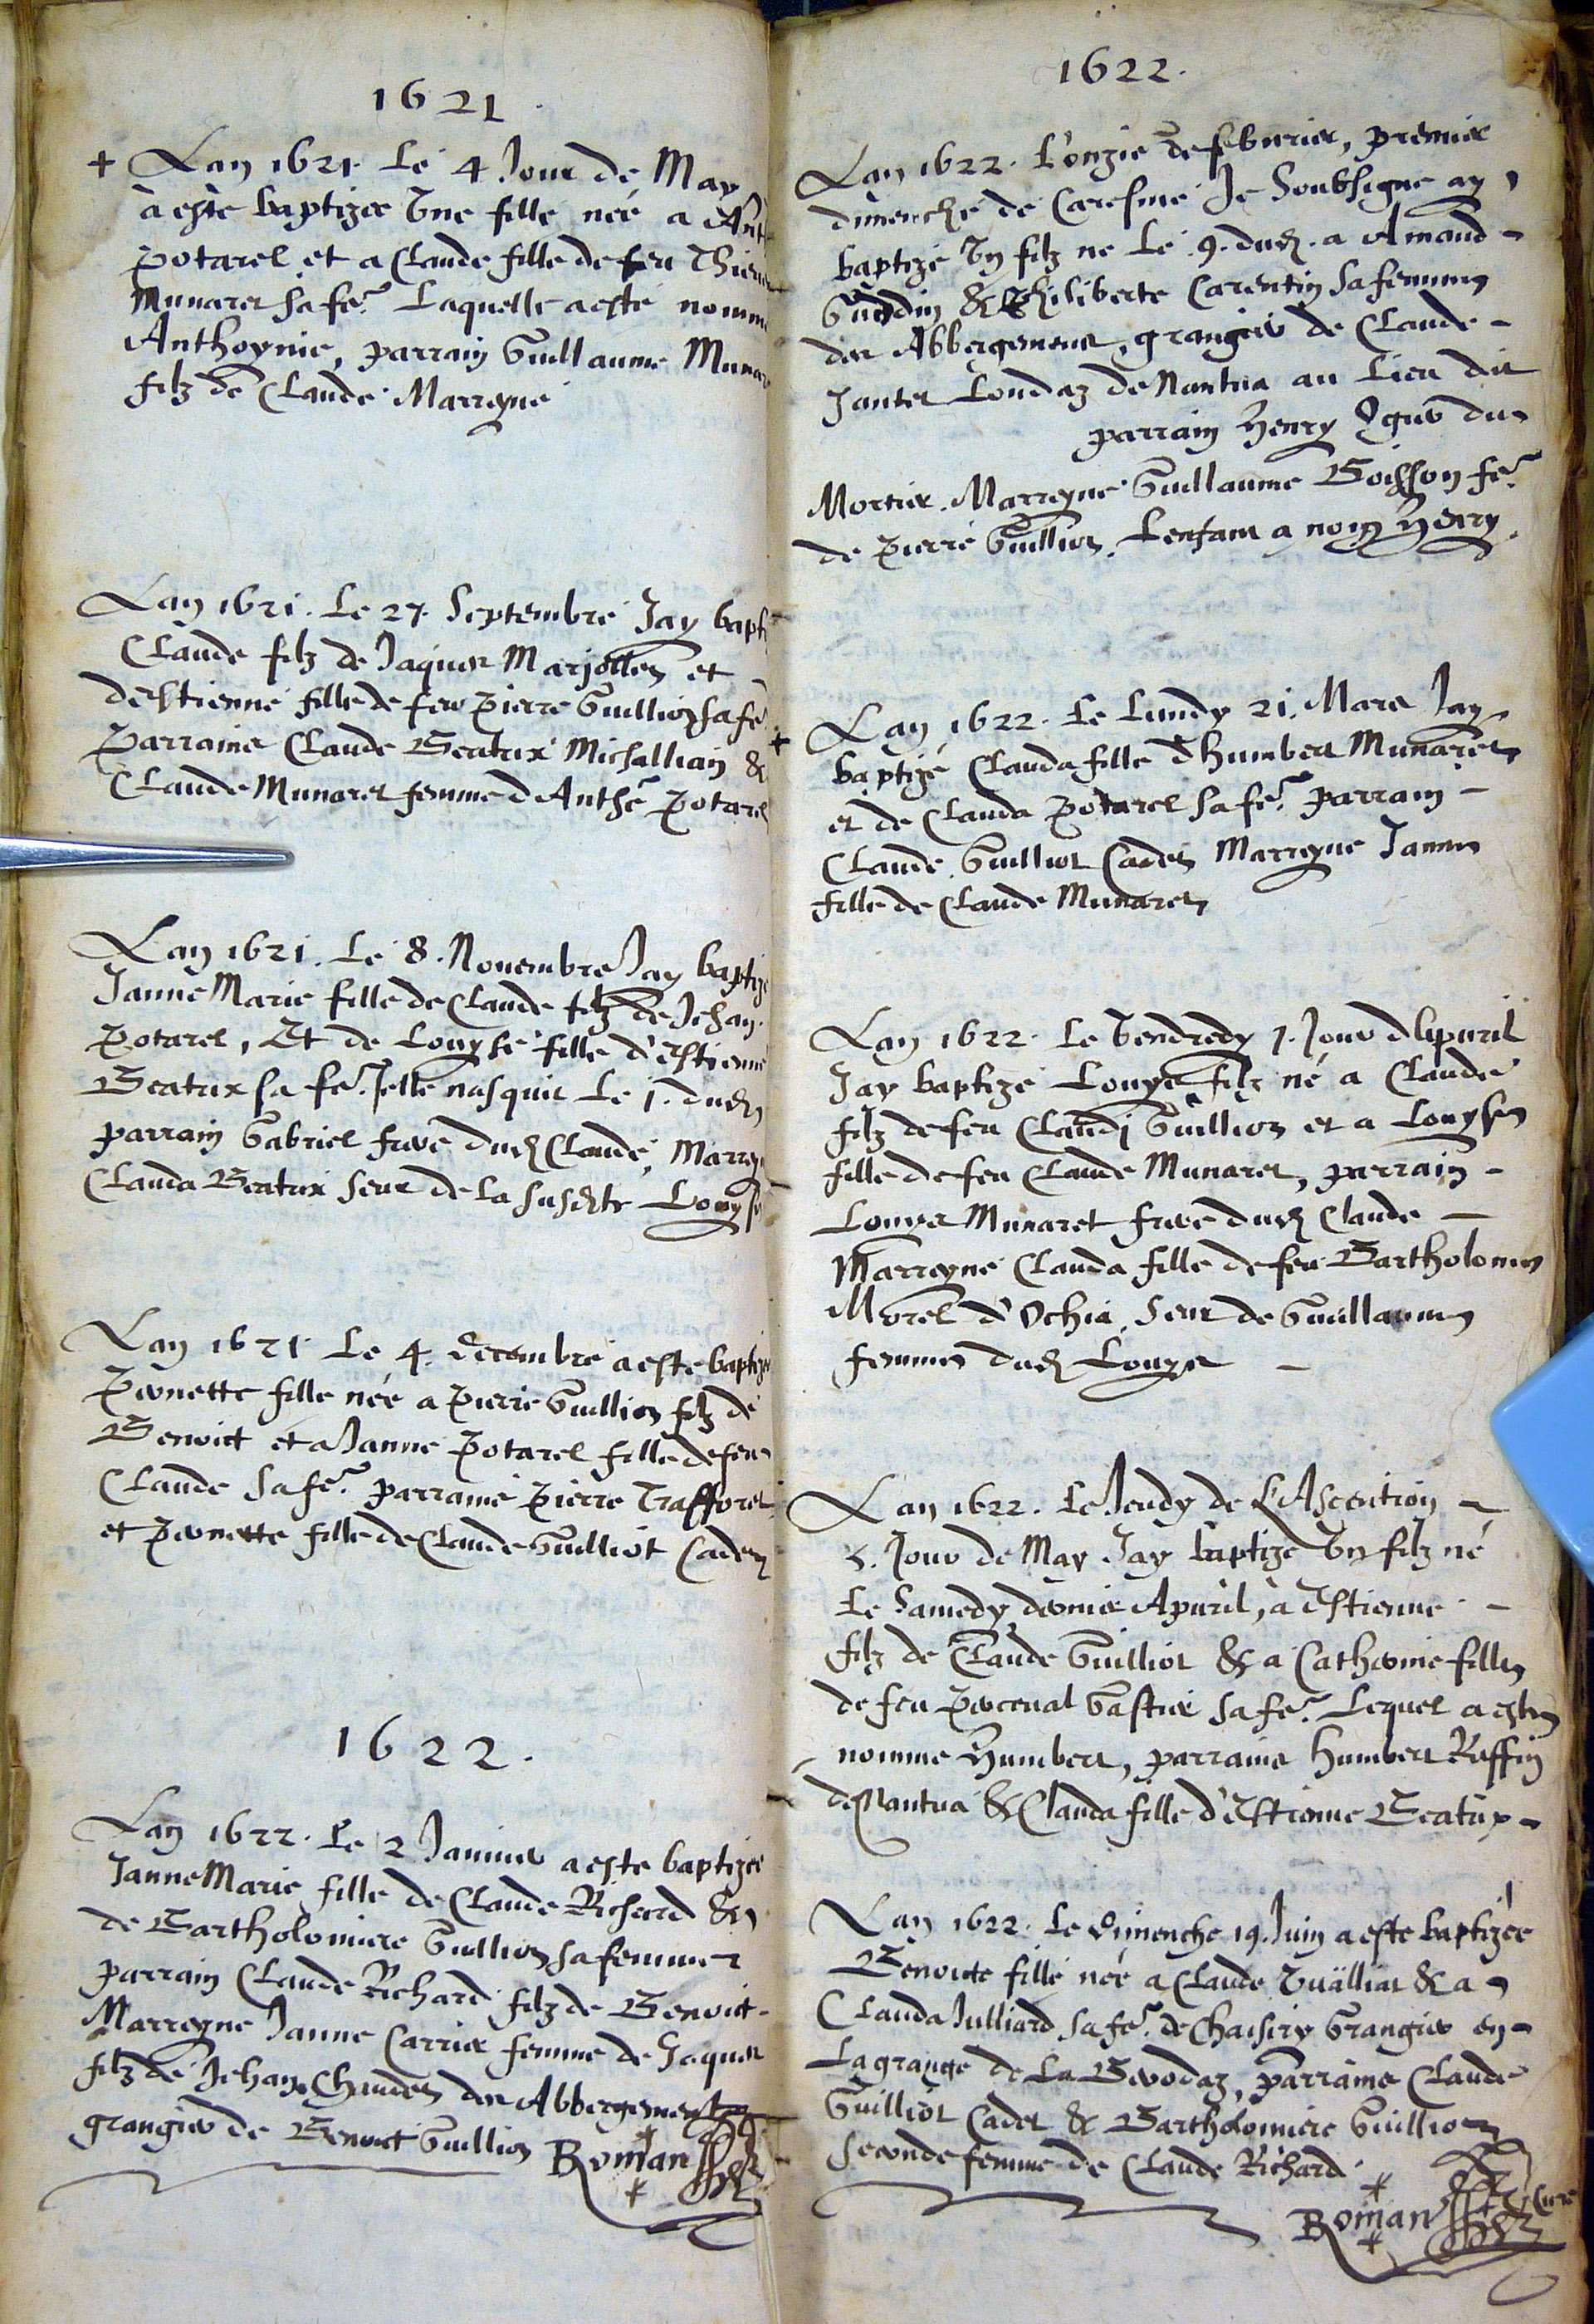 1621
+ Lan 1621. Le 4 Jour de May
à esté baptizée Une fille née a Ant
Potarel et a Claude fille de feu Thie
Munaret sa fe. Laquelle a esté nomm
Anthoynie, parrain Guillaume Munar
filz de Claude Marreyne
Lan 1621. Le 27. Septembre Jay bapt
Claude filz de Jaques Marjollet et
destienne fille de feu Pierre Guilliot sa fe
Parrains Claude Beatrix Michallian &
Claude Munaret femme d Anthe Potarel
Lan 1621. Le 8. Novembre Jay baptizé
Janne Marie fille de Claude filz de Jehan
Potarel, Et de Louyse fille d'Estienne
Beatrix sa fe. Jelle nasquit Le 1. dud
parrain Gabriel frere dud Claude, Marrey
Clauda Beatrix seur de la susdite Louyse
Lan 1621. Le 4. decembre a esté baptizée
Pernette fille née a Pierre Guilliot filz de
Benoict et a Janne Potarel fille de feu
Claude sa fe. parrains Pierre Trafforet
et Pernette fille de Claude Guilliot Cadet
1622.
Lan 1622. Le 2 Janvier a esté baptizée
Janne Marie fille de Claude Richard &
de Bartholomiere Guilliot sa femme
parrain Claude Richard filz de Benoict
Marreyne Janne Carrier femme de Jaques
filz de Jehan des Abbergemens
grangier de Benoict Guilliot Roman
1622.
Lan 1622. L'onzie de febvrier, premier
dimenche de Caresme Je Soubsigne ay
baptizé Un filz ne Le 9. dud. a Amand
& Philiberte Carentin sa femme
des Abbergemens, grangier de Claude
Jantet Londaz de Nantua au Lieu dit
parrain Henry du
Mortier. Marreyne Guillaume Boisson fe.
de Pierre Guilliot. Lenfant a nom Henry.
+ Lan 1622. Le Lundy 21. Mars Jay
baptizé Clauda fille d'humbert Munaret
et de Clauda Potarel sa fe. parrain
Claude Guilliot Cadet Marreyne Janne
fille de Claude Munaret
Lan 1622. Le Vendredy 1. Jour d'Apvril
Jay baptizé Louys filz né a Claude
filz de feu Claude Guilliot et a Louyse
fille de feu Claude Munaret, parrain
Louys Munaret frere dud Claude
Marreyne Clauda fille de feu Bartholome
Morel d'Ochia, seur de Guillaume
femme dud Louys
Lan 1622. Le Jeudy de L'Ascention
5. Jour de May Jay baptizé Un filz né
Le Samedy dernier Apvril, à Estienne
filz de Claude Guilliot & a Catherine fille
de feu Perceval Gastier sa fe. Lequel a esté
nomme Humbert, parrains humbert Ruffin
de Nantua & Clauda fille d'Estienne Beatrix
Lan 1622. Le dimenche 19. Juin a esté baptizée
Benoite fille née a Claude Vualliat & a
Clauda Julliard sa fe. de Chaisiry Grangier en
La grange de La Brodaz, parrains Claude
Guilliot Cadet & Bartholomiere Guilliot
seconde femme de Claude Richard
Roman Curé